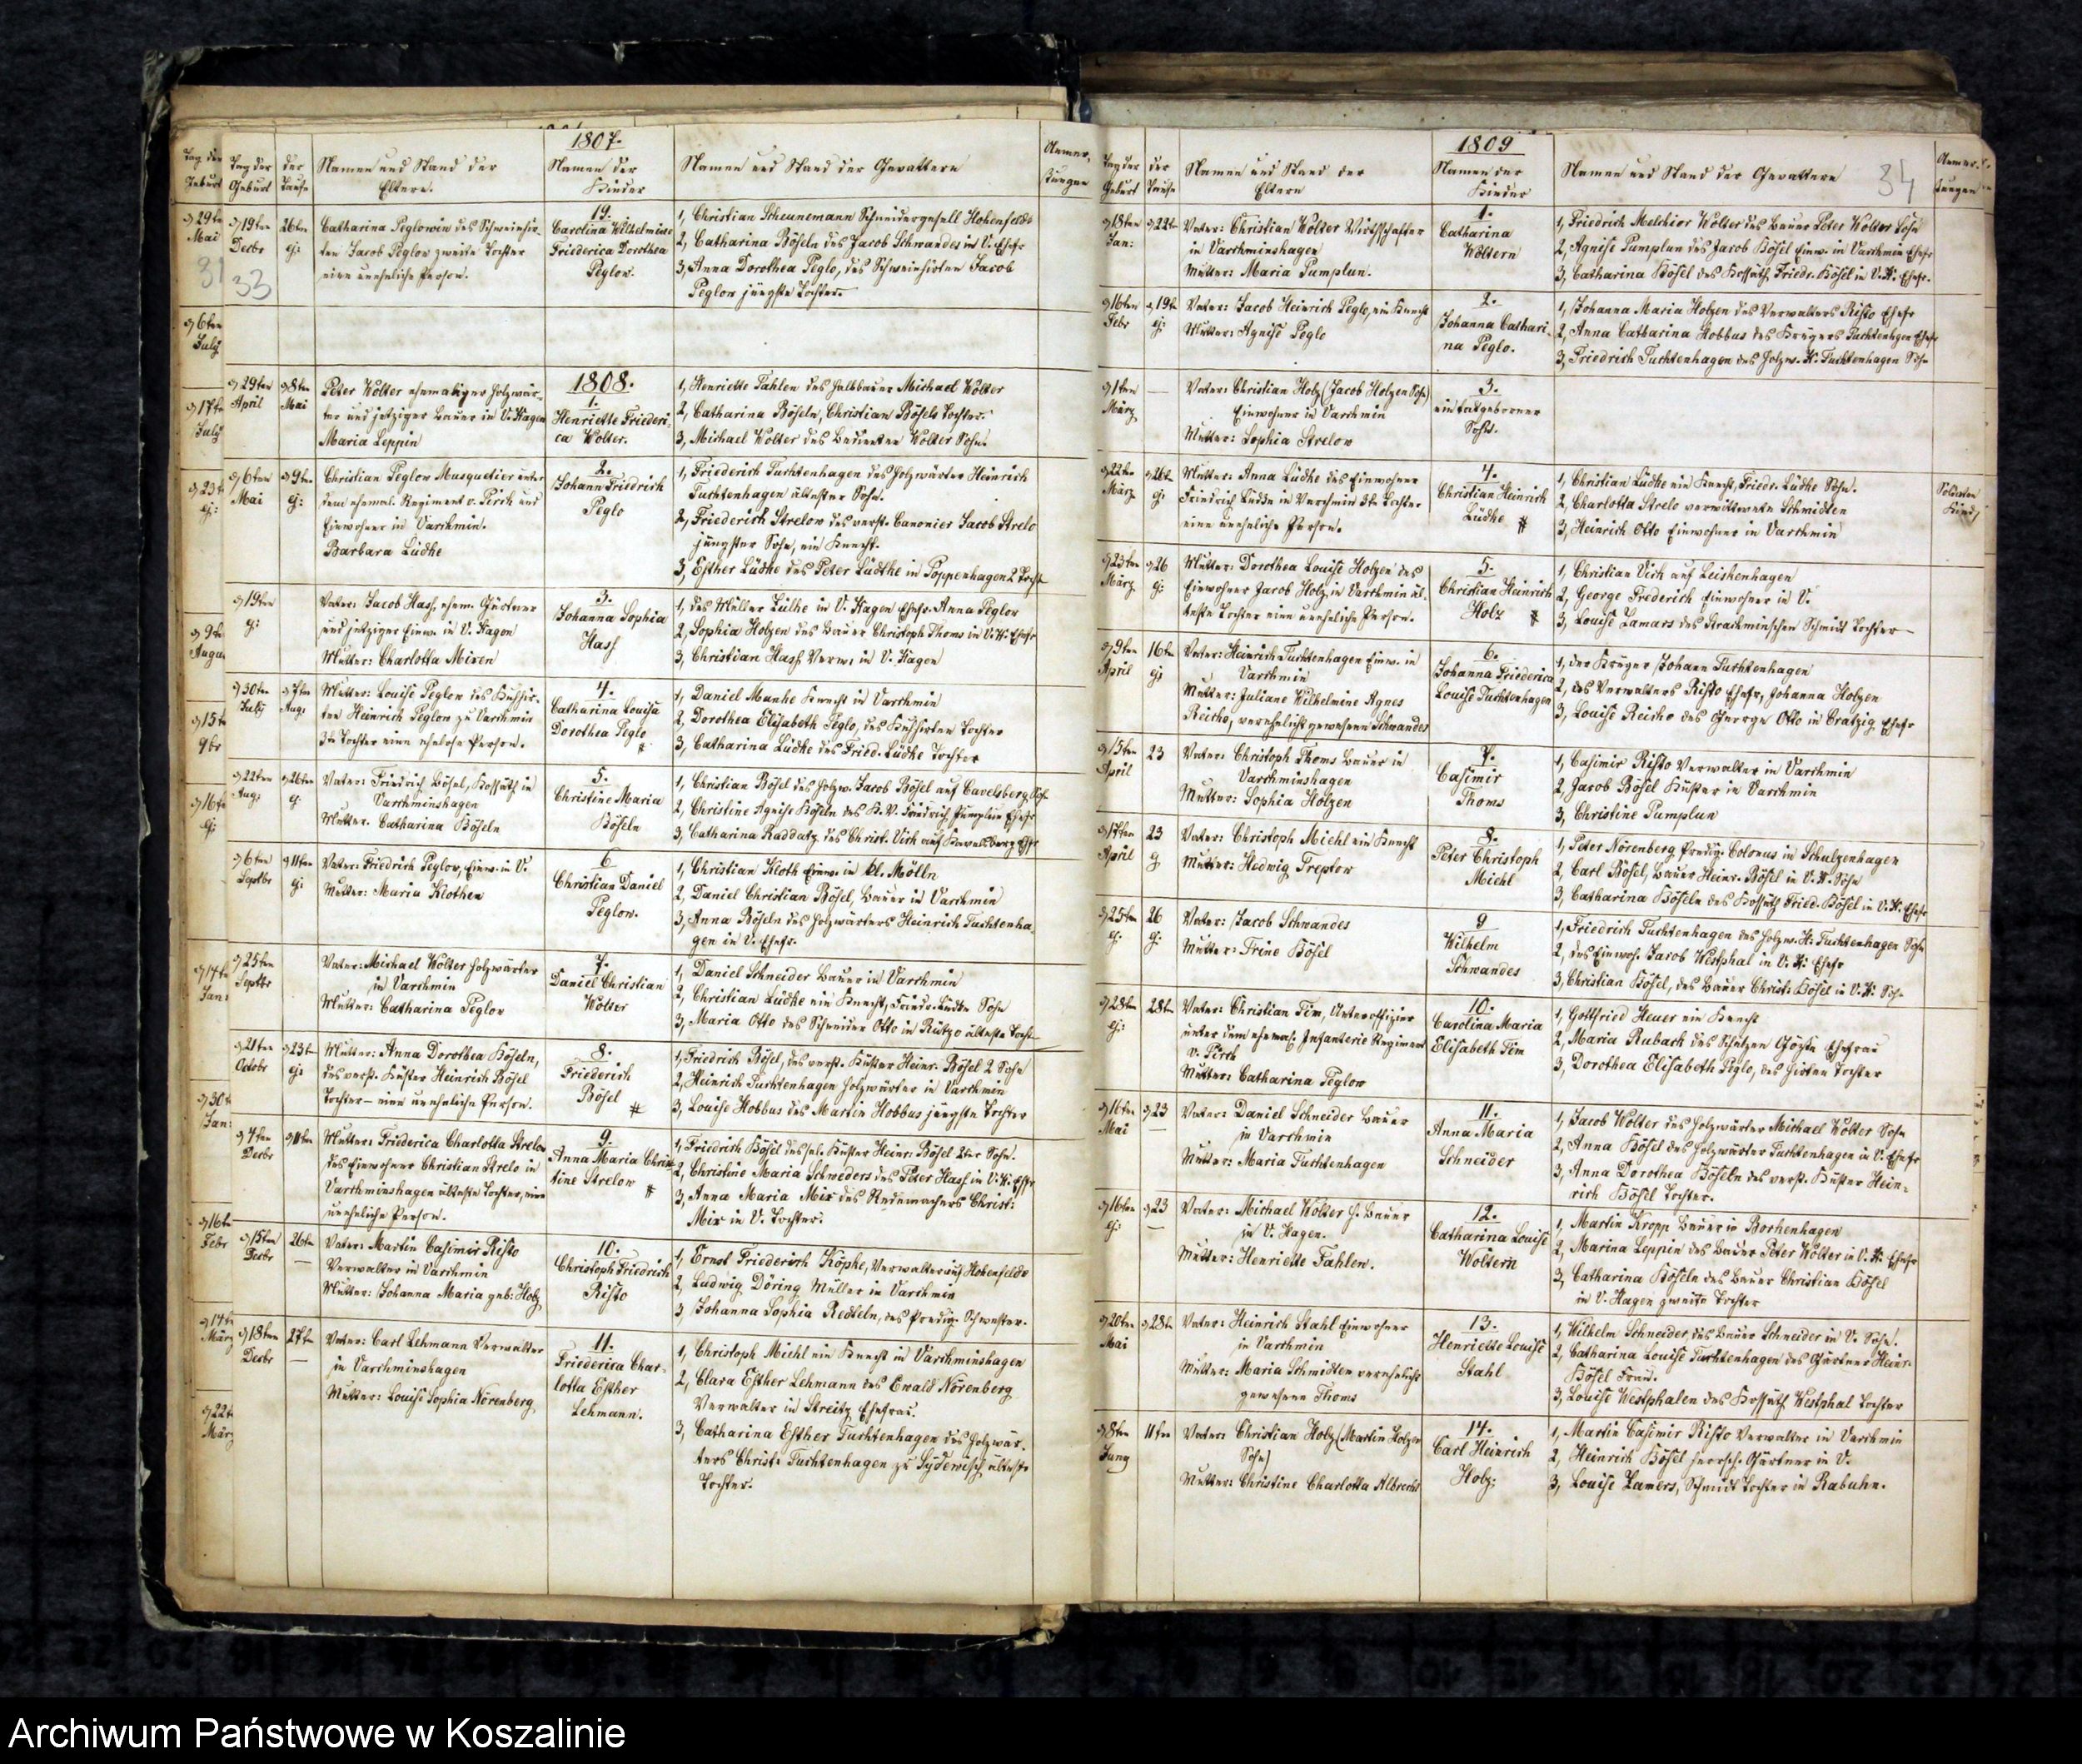 1807.
Tag der
Geburt
der
Taufe
Namen und Stand der
Eltern.
Namen der
Kinder
Namen und Stand der Gevattern
Anmer-
kungen
d 19ten
Decbr
26ten
ej:
Catharina Peglowin des Schweinehir-
ten Jacob Peglow zweite Tochter
eine uneheliche Person.
19.
Carolina Wilhelmine
Friederica Dorothea
Peglow.
1, Christian Scheunemann Schneidergesell Hohenfelde
2, Catharina Böseln des Jacob Schwandes in V. Ehefr
3, Anna Dorothea Peglo, des Schweinhirten Jacob
Peglow jüngste Tochter.
33
1808.
d 29ten
April
d 8ten
Mai
Peter Wolter ehemaliger Holzwär-
ter und jetziger Bauer in V. Hagen
Maria Leppin
1.
Henriette Friederi-
ca Wolter.
1, Henriette Fahlen des Halbbauer Michael Wolter
2, Catharina Böseln, Christian Bösels Tochter.
3, Michael Wolter des Wolter Sohn.
d 6ten
Mai
d 9ten
ej:
Christian Peglow Musquetier unter
dem ehemal. Regiment v. Pirch und
Einwohner in Varchmin.
Barbara Lüdke
2.
Johann Friedrich
Peglo
1, Friederich Tuchtenhagen des Holzwärter Heinrich
Tuchtenhagen ältester Sohn.
2, Friederich Strelow des verst. Canonier Jacob Strelo
jüngster Sohn, ein Knecht.
3, Esther Lüdke des Peter Lüdtke in Poppenhagen 2 Tocht
d 19ten
ej:
Vater: Jacob Hass, ehem. Gärtner
und jetziger Einw. in V. Hagen
Mutter: Charlotta Mixen
3.
Johanna Sophia
Hass
1, des Müller Lülke in V. Hagen Ehefr. Anna Peglow
2, Sophia Holzen des Bauer Christoph Thoms in V. H. Ehefr
3, Christian Hass Verw. in V. Hagen
d 30ten
July
d 7ten
Aug:
Mutter: Louise Peglow des Kuhhir-
ten Heinrich Peglow zu Varchmin
3te Tochter eine ehelose Person.
4.
Catharina Louisa
Dorothea Peglo
1, Daniel Manke Knecht in Varchmin
2, Dorothea Elisabeth Peglo, des Kuhhirten Tochter
3, Catharina Lüdke des Fried. Lüdke Tochter
d 22ten
Aug:
d 26ten
ej.
Vater: Friedrich Bösel, Kossäth in
Varchminshagen
Mutter. Catharina Böseln
5.
Christine Maria
Böseln
1, Christian Bösel des Holzw. Jacob Bösel auf Cavelsberg Sohn
2, Christine Agnise Böseln des Friedrich Pumplun Ehefr
3, Catharina Raddatz des Christ. Virk auf Kavelsberg Ehfr
d 6ten
Septbr
d 11ten
ej:
Vater: Friedrich Peglow, Einw. in V.
Mutter: Maria Klothen
6
Christian Daniel
Peglow.
1, Christian Kloth Einw. in kl. Mölln
2, Daniel Christian Bösel, Bauer in Varchmin
3, Anna Böseln des Holzwärters Heinrich Tuchtenha-
gen in V. Ehefr.
d 25ten
Septbr
Vater: Michael Wolter Holzwärter
in Varchmin
Mutter: Catharina Peglow
7.
Daniel Christian
Wolter
1, Daniel Schneider Bauer in Varchmin
2, Christian Lüdke ein Knecht, Friedr. Lüdke Sohn
3, Maria Otto des Schneider Otto in Rützo älteste Tocht
d 21ten
Octobr
d 23t
ej:
Mutter: Anna Dorothea Böseln,
des verst. Küster Heinrich Bösel
Tochter – eine uneheliche Person.
8.
Friederich
Bösel #
1, Friedrich Bösel, des verst. Küster Heinr. Bösel 2 Sohn
2, Heinrich Tuchtenhagen Holzwärter in Varchmin
3, Louise Hobbus des Martin Hobbus jüngste Tochter
d 7ten
Decbr
d 11ten
Mutter: Friederica Charlotta Strelow
des Einwohner Christian Strelo in
Varchminshagen älteste Tochter, eine
uneheliche Person.
9.
Anna Maria Chris-
tine Strelow #
1, Friedrich Bösel des sel. Küster Heinr. Bösel 2ter Sohn.
2, Christine Maria Schweders des Peter Hass in V. H. Ehfr
3, Anna Maria Mix des Rademachers Christ:
Mix in V. Tochter.
d 15ten
Decbr
26ten
Vater: Martin Casimir Risto
Verwalter in Varchmin
Mutter: Johanna Maria geb: Holz
10.
Christoph Friedrich
Risto
1, Ernst Friederich Köpke, Verwalter auf Hohenfelde
2, Ludwig Döring Müller in Varchmin
3 Johanna Sophia Redteln, des Predig. Schwester.
d 18ten
Decbr
27ten
Vater: Carl Lehmann Verwalter
in Varchminshagen
Mutter: Louise Sophia Nörenberg
11.
Friederica Char-
lotta Esther
Lehmann.
1, Christoph Miehl ein Knecht in Varchminshagen
2, Clara Esther Lehmann des Ewald Nörenberg
Verwalter in Streitz Ehefrau.
3, Catharina Esther Tuchtenhagen des Holzwär-
ters Christ: Tuchtenhagen zu Sydewisch älteste
Tochter.
1809
34
Tag der
Geburt
der
Taufe
Namen und Stand der
Eltern
Namen der
Kinder
Namen und Stand der Gevattern
Anmer-
kungen
d 18ten
Jan:
d 22ten
Vater: Christian Wolter Wirthschafter
in Varchminshagen
Mutter: Maria Pumplun.
1.
Catharina
Woltern
1, Friedrich Melchior Wolter des Bauer Peter Wolter Sohn
2, Agnise Pumplun des Jacob Bösel Einw. in Varchmin Ehefr
3, Catharina Bösel des Kossäth Friedr. Bösel in V. H. Ehefr.
d 16ten
Febr
d 19ten
ej:
Vater: Jacob Heinrich Peglo, ein Knecht
Mutter: Agnise Peglo
2.
Johanna Cathari-
na Peglo.
1, Johanna Maria Holzen des Verwalters Risto Ehefr
2, Anna Catharina Hobbus des Krügers Tuchtenhagen Ehefr
3, Friedrich Tuchtenhagen des Holzw. H. Tuchtenhagen Sohn
d 1ten
März
Vater: Christian Holz (Jacob Holzen Sohn)
Einwohner in Varchmin
Mutter: Sophia Strelow
3.
ein todtgeborner
Sohn.
d 22ten
März
d 26ten
ej:
Mutter: Anna Lüdke des Einwohner
Friedrich Lüdke in Varchmin 3te Tochter
eine uneheliche Person.
4.
Christian Heinrich
Lüdke #
1, Christian Lüdke ein Knecht, Friedr. Lüdke Sohn.
2, Charlotta Strelo verwittwete Schmidten
3, Heinrich Otto Einwohner in Varchmin
Soldaten
Kind
d 23ten
März
d 26
ej:
Mutter: Dorothea Louise Holzen des
Einwohner Jacob Holz in Varchmin äl-
teste Tochter eine uneheliche Person.
5.
Christian Heinrich
Holz #
1, Christian Virk auf Leikenhagen
2, George Frederich Einwohner in V.
3, Louise Lamars des Strachminschen Schmidt Tochter
d 9ten
April
16ten
ej:
Vater: Heinrich Tuchtenhagen Einw. in
Varchmin
Mutter: Juliane Wilhelmine Agnes
Reicho, verehelicht gewesene Schwandes
6.
Johanna Friederica
Louise Tuchtenhagen
1, der Krüger Johann Tuchtenhagen
2, des Verwalters Risto Ehefr, Johanna Holzen
3, Louise Reicho des George Otto in Cratzig Ehefr
d 15ten
April
23
Vater: Christoph Thoms Bauer in
Varchminshagen
Mutter: Sophia Holzen
7.
Casimir
Thoms
1, Casimir Risto Verwalter in Varchmin
2, Jacob Bösel Küster in Varchmin
3, Christine Pumplun
d 17ten
April
23
ej.
Vater: Christoph Miehl ein Knecht
Mutter: Hedwig Treptow
8.
Peter Christoph
Miehl
1, Peter Nörenberg Predig. Colonus in Schulzenhagen
2, Carl Bösel, Bauer Heinr. Bösel in V. H. Sohn
3, Catharina Böseln des Kossäth Fried. Bösel in V. H. Ehefr
d 25ten
ej.
26
ej:
Vater: Jacob Schwandes
Mutter: Trine Bösel
9
Wilhelm
Schwandes
1, Friedrich Tuchtenhagen des Holzw. H. Tuchtenhagen Sohn
2, des Einwoh. Jacob Westphal in V. H: Ehefr
3, Christian Bösel, des Bauer Christ: Bösel in V. H: Sohn
d 28ten
ej:
28ten
Vater: Christian Tim, Unterofficier
unter dem ehemal. Infanterie Regiment
v. Pirch
Mutter: Catharina Peglow
10.
Carolina Maria
Elisabeth Tim
1, Gottfried Heuer ein Knecht
2, Maria Rubach des Schützen Ehefrau
3, Dorothea Elisabeth Peglo, des Hirten Tochter
d 16ten
Mai
d 23
Vater: Daniel Schneider Bauer
in Varchmin
Mutter: Maria Tuchtenhagen
11.
Anna Maria
Schneider
1, Jacob Wolter des Holzwärter Michael Wolter Sohn
2, Anna Bösel des Holzwärter Tuchtenhagen in V. Ehefr
3, Anna Dorothea Böseln des verst. Küster Hein-
rich Bösel Tochter.
d 16ten
ej:
d 23
Vater: Michael Wolter H. Bauer
in V. Hagen.
Mutter: Henriette Fahlen.
12.
Catharina Louise
Woltern
1, Martin Kropp Bauer in Borkenhagen
2, Marina Leppin des Bauer Peter Wolter in V. H: Ehefr
3, Catharina Böseln des Bauer Christian Bösel
in V. Hagen zweite Tochter
d 20ten
Mai
d 28ten
Vater: Heinrich Stahl Einwohner
in Varchmin
Mutter: Maria Schmidten verehelicht
gewesene Thoms
13.
Henriette Louise
Stahl
1, Wilhelm Schneider, des Bauer Schneider in V. Sohn.
2, Catharina Louise Tuchtenhagen des Gärtner Heinr.
Bösel Frau.
3, Louise Westphalen des Kossäth Westphal Tochter
d 8ten
Juny
11ten
Vater: Christian Holz (Martin Holzen
Sohn)
Mutter: Christine Charlotta Albrecht
14.
Carl Heinrich
Holz.
1, Martin Casimir Risto Verwalter in Varchmin
2, Heinrich Bösel herrsch. Gärtner in V.
3, Louise Lamers, Schmidt Tochter in Rabuhn.
Archiwum Państwowe w Koszalinie